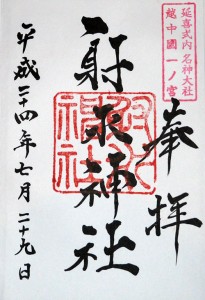 延喜式内 名神大社
越中國一ノ宮
奉拝
射水神社
射水神社
平成二十四年七月二十九日